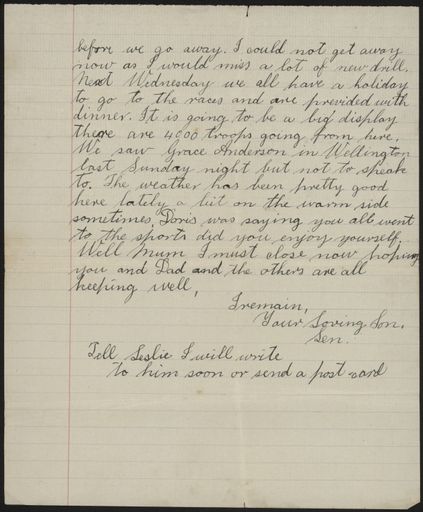 before we go away. I could not get away
now as I would miss a lot of new drill.
Next Wednesday we all have a holiday
to go to the races and are provided with
dinner. It is going to be a big display
there are 4000 troops going from here.
We saw Grace Anderson in Wellington
last Sunday night but not to speak
to. The weather has been pretty good
here lately a bit on the warm side
sometimes, Doris was saying you all went
to the sports did you enjoy yourself.
Well Mum I must close now hoping
you and Dad and the others are all
keeping well,
I remain,
Your Loving Son,
Len.
Tell Leslie I will write
to him soon or send a post-card